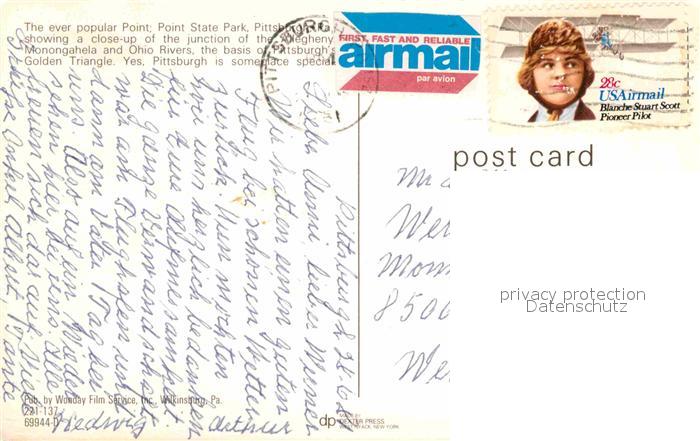 The ever popular Point; Point State Park, Pittsburgh, Pa.,
showing a close-up of the junction of the Allegheny,
Monongahela and Ohio Rivers, the basis of Pittsburgh's
Golden Triangle. Yes, Pittsburgh is someplace special
PITTSBURGH
FIRST, FAST AND RELIABLE
airmail
par avion
28c
USAirmail
Blanche Stuart Scott
Pioneer Pilot
post card
Pittsburgh
Liebe Anni, lieber Werner
Wir hatten einen guten
Flug bei schönem Wetter
zurück. Nun möchten
wir uns herzlich bedanken
für die
Die ganze Verwandschaft
war am Flughafen und
Vater Tag bei
uns. Also auf ein Wieder
sehen hier bei uns, alle
freuen sich darauf
Onkel Albert, Tante
Hedwig
Arthur
Mr
Wer
Mom
8500
We
privacy protection
Datenschutz
Pub. by Wonday Film Service, Inc., Wilkinsburg, Pa.
221-137
69944-D
dp
MADE BY
DEXTER PRESS
WEST NYACK, NEW YORK